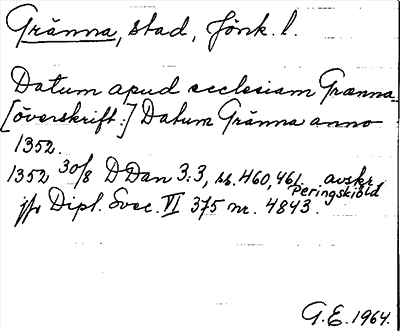 Gränna, stad, Jönk. l.
Datum apud ecclesiam Grænna-
[överskrift:] Datum Gränna anno
1352.
1352 30/8 DDan 3:3, ss. 460, 461. avskr. Peringskiöld
jfr Dipl. Svec. VI 375 nr. 4843.
G.E. 1964.